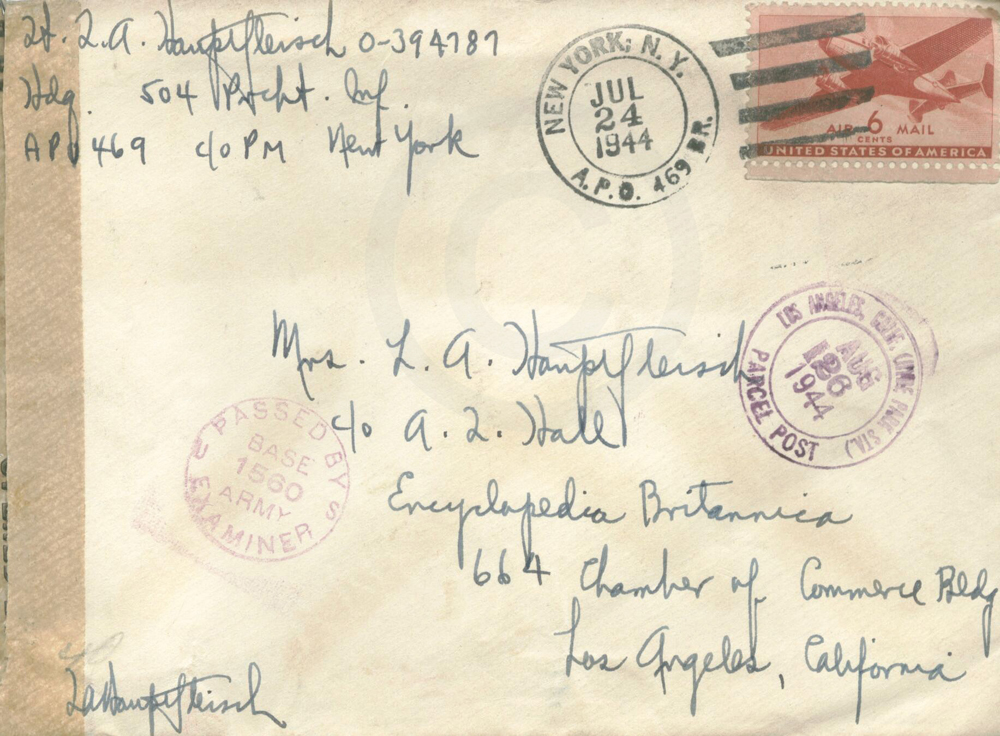 Lt. L.A. Hauptfleisch O-394787
Hdq. 504 Prcht. Inf.
APO 469 c/o PM New York
NEW YORK, N.Y.
JUL
24
1944
A.P.O. 469 BR.
AIR 6 MAIL
CENTS
UNITED STATES OF AMERICA
Mrs. L. A. Hauptfleisch
c/o A. L. Hall
Encyclopedia Britannica
664 Chamber of Commerce Bldg
Los Angeles, California
LOS ANGELES, CALIF.
AUG
1944
PARCEL POST
PASSED BY
U S
BASE
1560
ARMY
EXAMINER
LAHauptfleisch